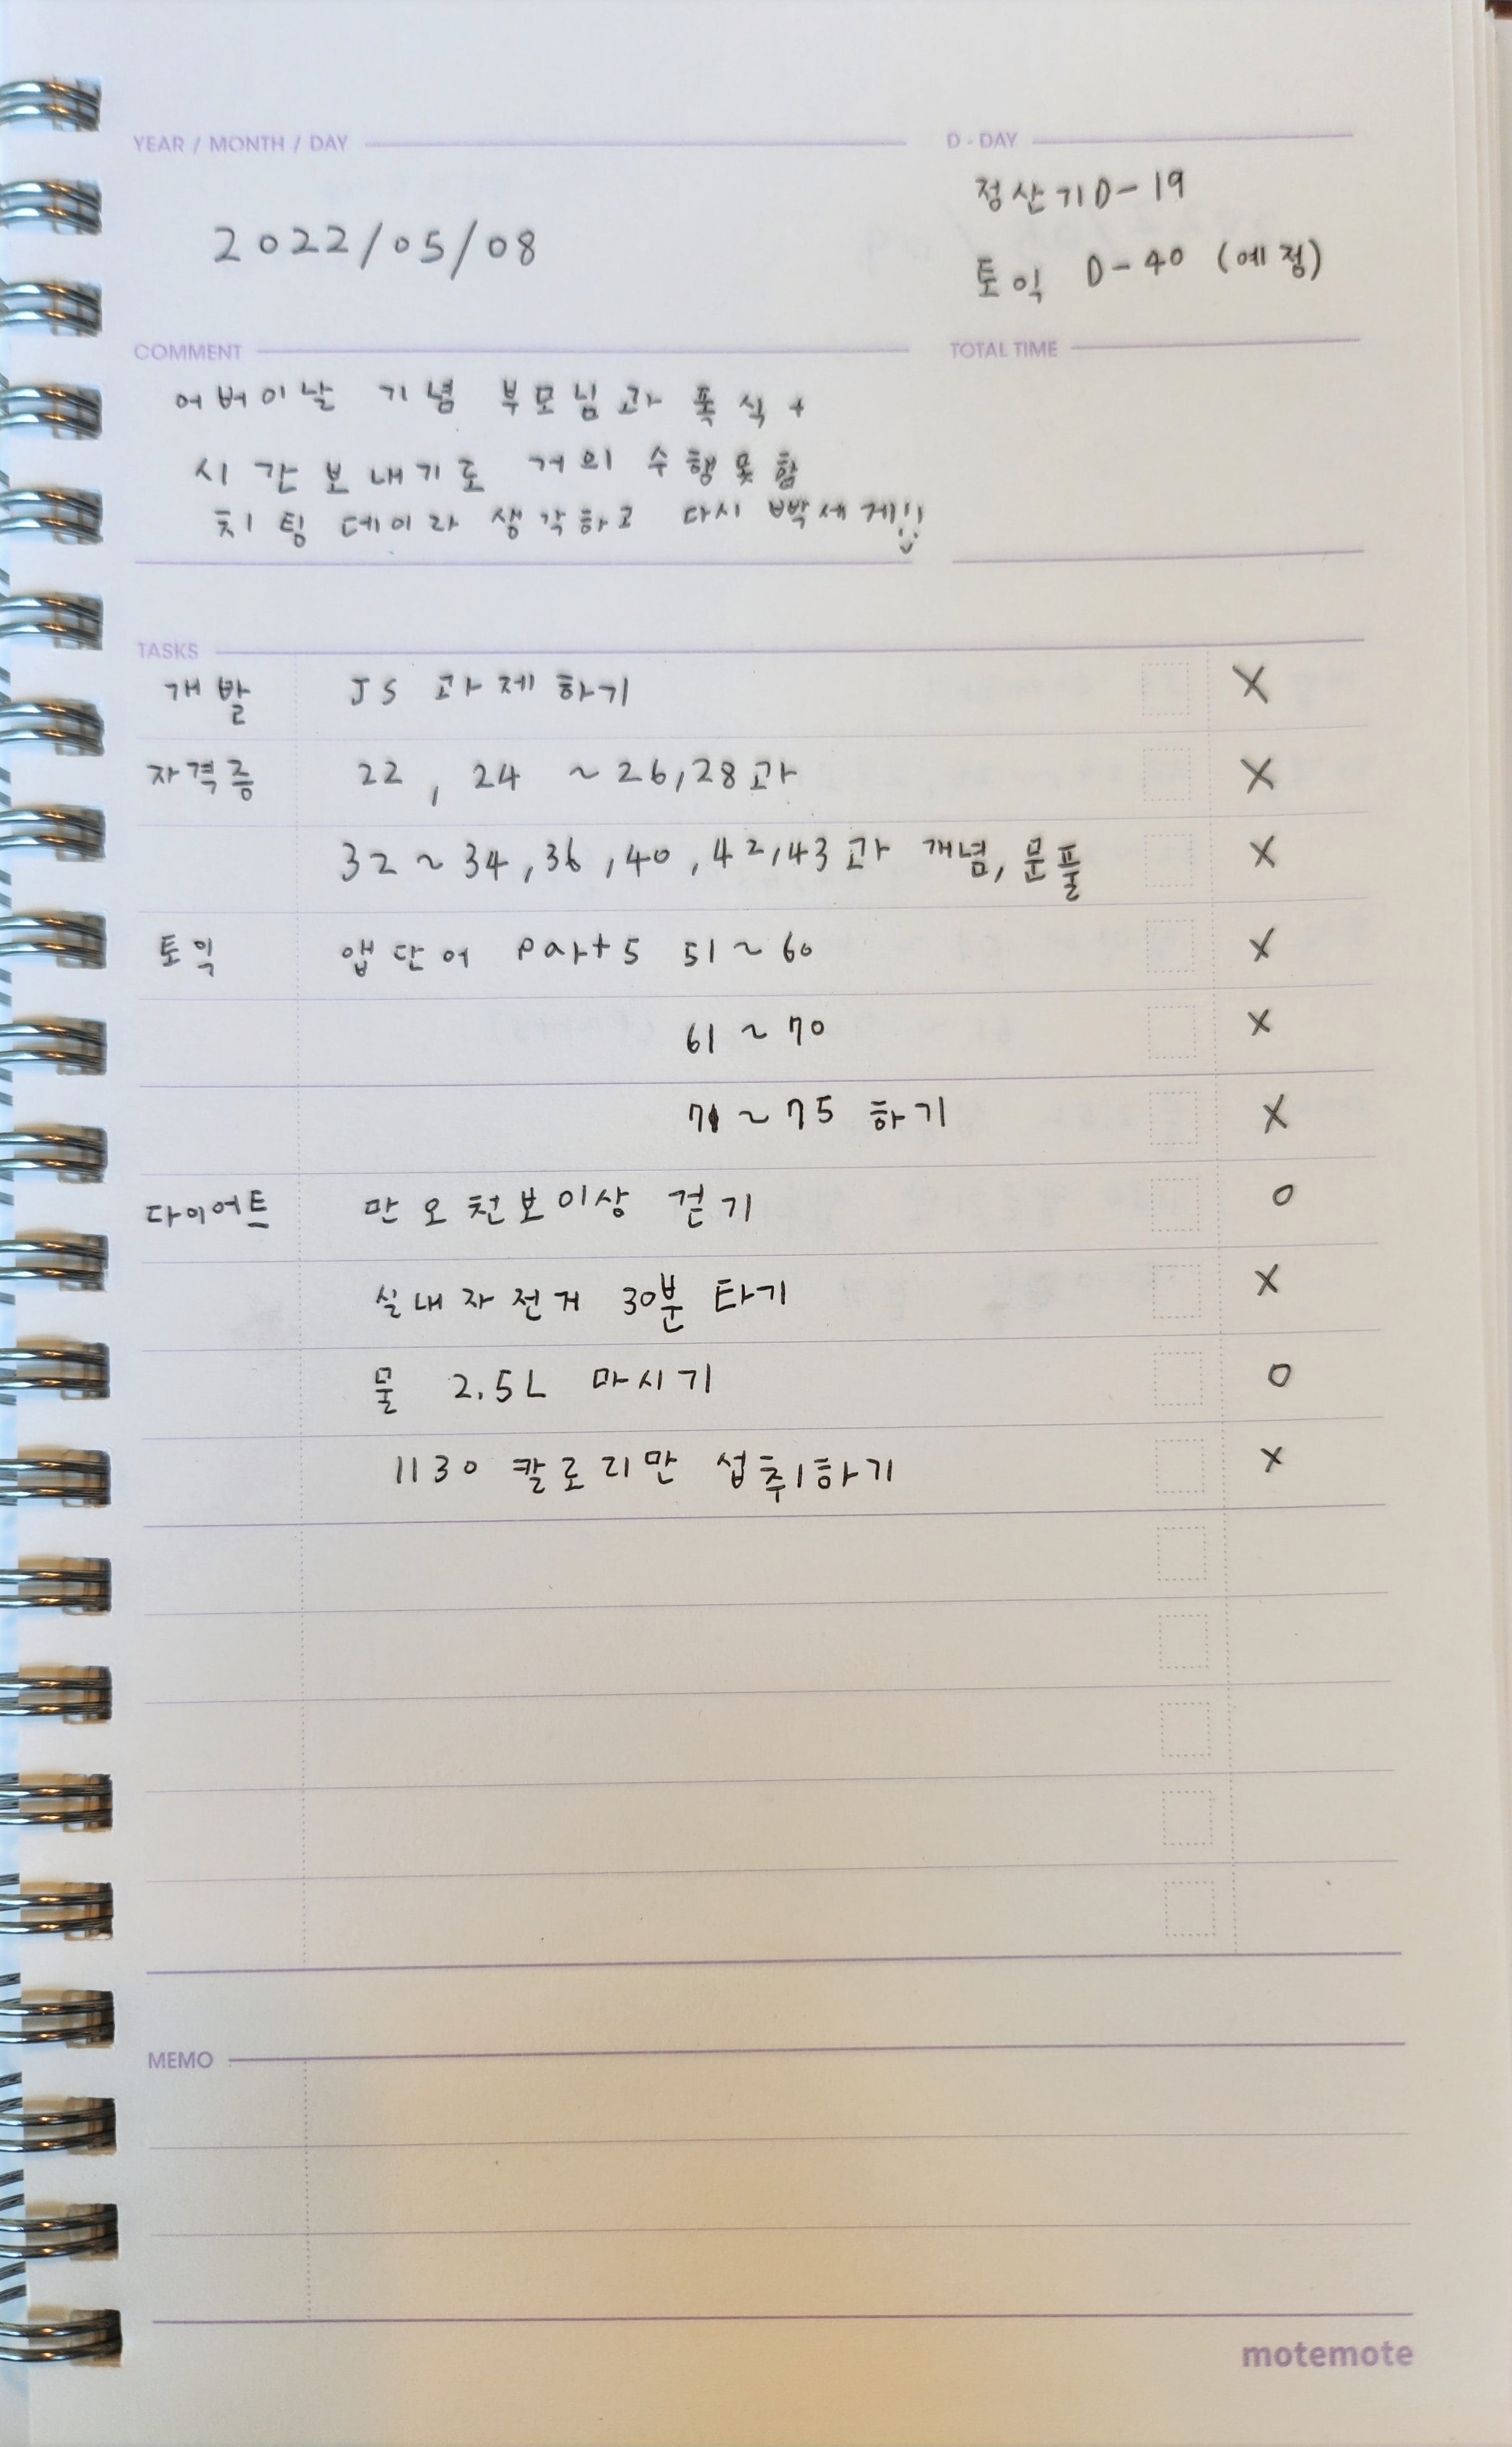 YEAR / MONTH / DAY
2022/05/08
D-DAY
정산기D-19
토익 D-40 (예정)
COMMENT
어버이날 기념 부모님과 폭식+
시간보내기로 거의 수행못함
치팅데이라 생각하고 다시 빡세게!!
TOTAL TIME
TASKS
개발 JS 과제하기 X
자격증 22, 24 ~26,28과 X
32~34,36,40,42,43과 개념,문풀 X
토익 앱단어 part5 51~60 X
61~70 X
71~75 하기 X
다이어트 만오천보이상 걷기 O
실내자전거 30분 타기 X
물 2.5L 마시기 O
1130 칼로리만 섭취하기 X
MEMO
motemote